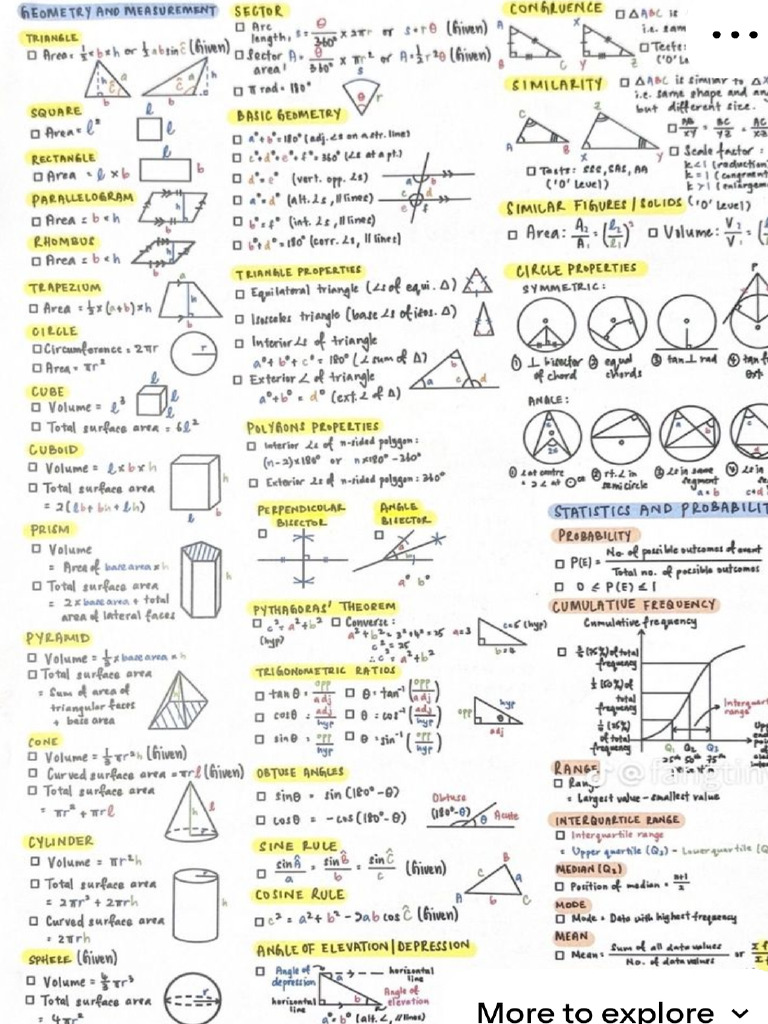 GEOMETRY AND MEASUREMENT
TRIANGLE
Area = ½ × b × h or ½ absinĈ (Given)
SQUARE
Area = l²
RECTANGLE
Area = l × b
PARALLELOGRAM
Area = b × h
RHOMBUS
Area = b × h
TRAPEZIUM
Area = ½ × (a+b) × h
CIRCLE
Circumference = 2πr
Area = πr²
CUBE
Volume = l³
Total surface area = 6l²
CUBOID
Volume = l × b × h
Total surface area
= 2(lb + bh + lh)
PRISM
Volume
= Area of base area × h
Total surface area
= 2 × base area + total
area of lateral faces
PYRAMID
Volume = ⅓ × base area × h
Total surface area
= Sum of area of
triangular faces
+ base area
CONE
Volume = ⅓πr²h (Given)
Curved surface area = πrl (Given)
Total surface area
= πr² + πrl
CYLINDER
Volume = πr²h
Total surface area
= 2πr² + 2πrh
Curved surface area
= 2πrh
SPHERE (Given)
Volume = 4/3 πr³
Total surface area
= 4πr²
SECTOR
Arc length, s = θ/360° × 2πr or s = rθ (Given)
Sector area: A = θ/360° × πr² or A = ½r²θ (Given)
π rad = 180°
BASIC GEOMETRY
a° + b° = 180° (adj. ∠s on a str. line)
c° + d° + e° + f° = 360° (∠s at a pt.)
d° = e° (vert. opp. ∠s)
a° = d° (alt. ∠s, // lines)
b° = f° (int. ∠s, // lines)
b° + d° = 180° (corr. ∠s, // lines)
TRIANGLE PROPERTIES
Equilateral triangle (∠s of equi. Δ)
Isosceles triangle (base ∠s of isos. Δ)
Interior ∠s of triangle
a° + b° + c° = 180° (∠ sum of Δ)
Exterior ∠ of triangle
a° + b° = d° (ext. ∠ of Δ)
POLYGONS PROPERTIES
Interior ∠s of n-sided polygon:
(n-2) × 180° or n × 180° - 360°
Exterior ∠s of n-sided polygon: 360°
PERPENDICULAR BISECTOR
ANGLE BISECTOR
a° b°
PYTHAGORAS' THEOREM
c² = a² + b²
(hyp)
Converse:
a² + b² = 3² + 4² = 25
c² = 25
∴ c² = a² + b²
a=3
c=5 (hyp)
b=4
TRIGONOMETRIC RATIOS
tan θ = opp/adj
θ = tan⁻¹ (opp/adj)
cos θ = adj/hyp
θ = cos⁻¹ (adj/hyp)
sin θ = opp/hyp
θ = sin⁻¹ (opp/hyp)
opp
hyp
adj
OBTUSE ANGLES
sin θ = sin (180° - θ)
cos θ = - cos (180° - θ)
Obtuse
(180° - θ)
θ
Acute
SINE RULE
sin Â/a = sin B̂/b = sin Ĉ/c (Given)
COSINE RULE
c² = a² + b² - 2ab cos Ĉ (Given)
ANGLE OF ELEVATION/DEPRESSION
Angle of depression
horizontal line
horizontal line
Angle of elevation
a° = b° (alt. ∠, // lines)
CONGRUENCE
ΔABC is
i.e. sam
Tests:
('O' L
SIMILARITY
ΔABC is similar to ΔX
i.e. same shape and an
but different size.
AB/XY = BC/YZ = AC/XZ
Scale factor:
k < 1 (reduction)
k = 1 (congruent
k > 1 (enlargem
('O' Level)
Tests: SSS, SAS, AA
('O' Level)
SIMILAR FIGURES/SOLIDS
Area: A₂/A₁ = (l₂/l₁)²
Volume: V₂/V₁ =
CIRCLE PROPERTIES
SYMMETRIC:
① ⊥ bisector of chord
② equal chords
③ tan ⊥ rad
④ tan f
ext
ANGLE:
① ∠ at centre
= 2∠ at ⊙ce
② rt. ∠ in semicircle
③ ∠s in same segment
a = b
STATISTICS AND PROBABILIT
PROBABILITY
P(E) = No. of possible outcomes of event / Total no. of possible outcomes
0 ≤ P(E) ≤ 1
CUMULATIVE FREQUENCY
Cumulative frequency
¾ (75%) of total frequency
½ (50%) of total frequency
¼ (25%) of total frequency
Interquart
range
Q₁ Q₂ Q₃
25th 50th 75th
RANGE
= Largest value - smallest value
INTERQUARTICE RANGE
Interquartile range
= Upper quartile (Q₃) - Lower quartile (Q
MEDIAN (Q₂)
Position of median = n+1/2
MODE
Mode = Data with highest frequency
MEAN
Mean = Sum of all data values / No. of data values or
More to explore